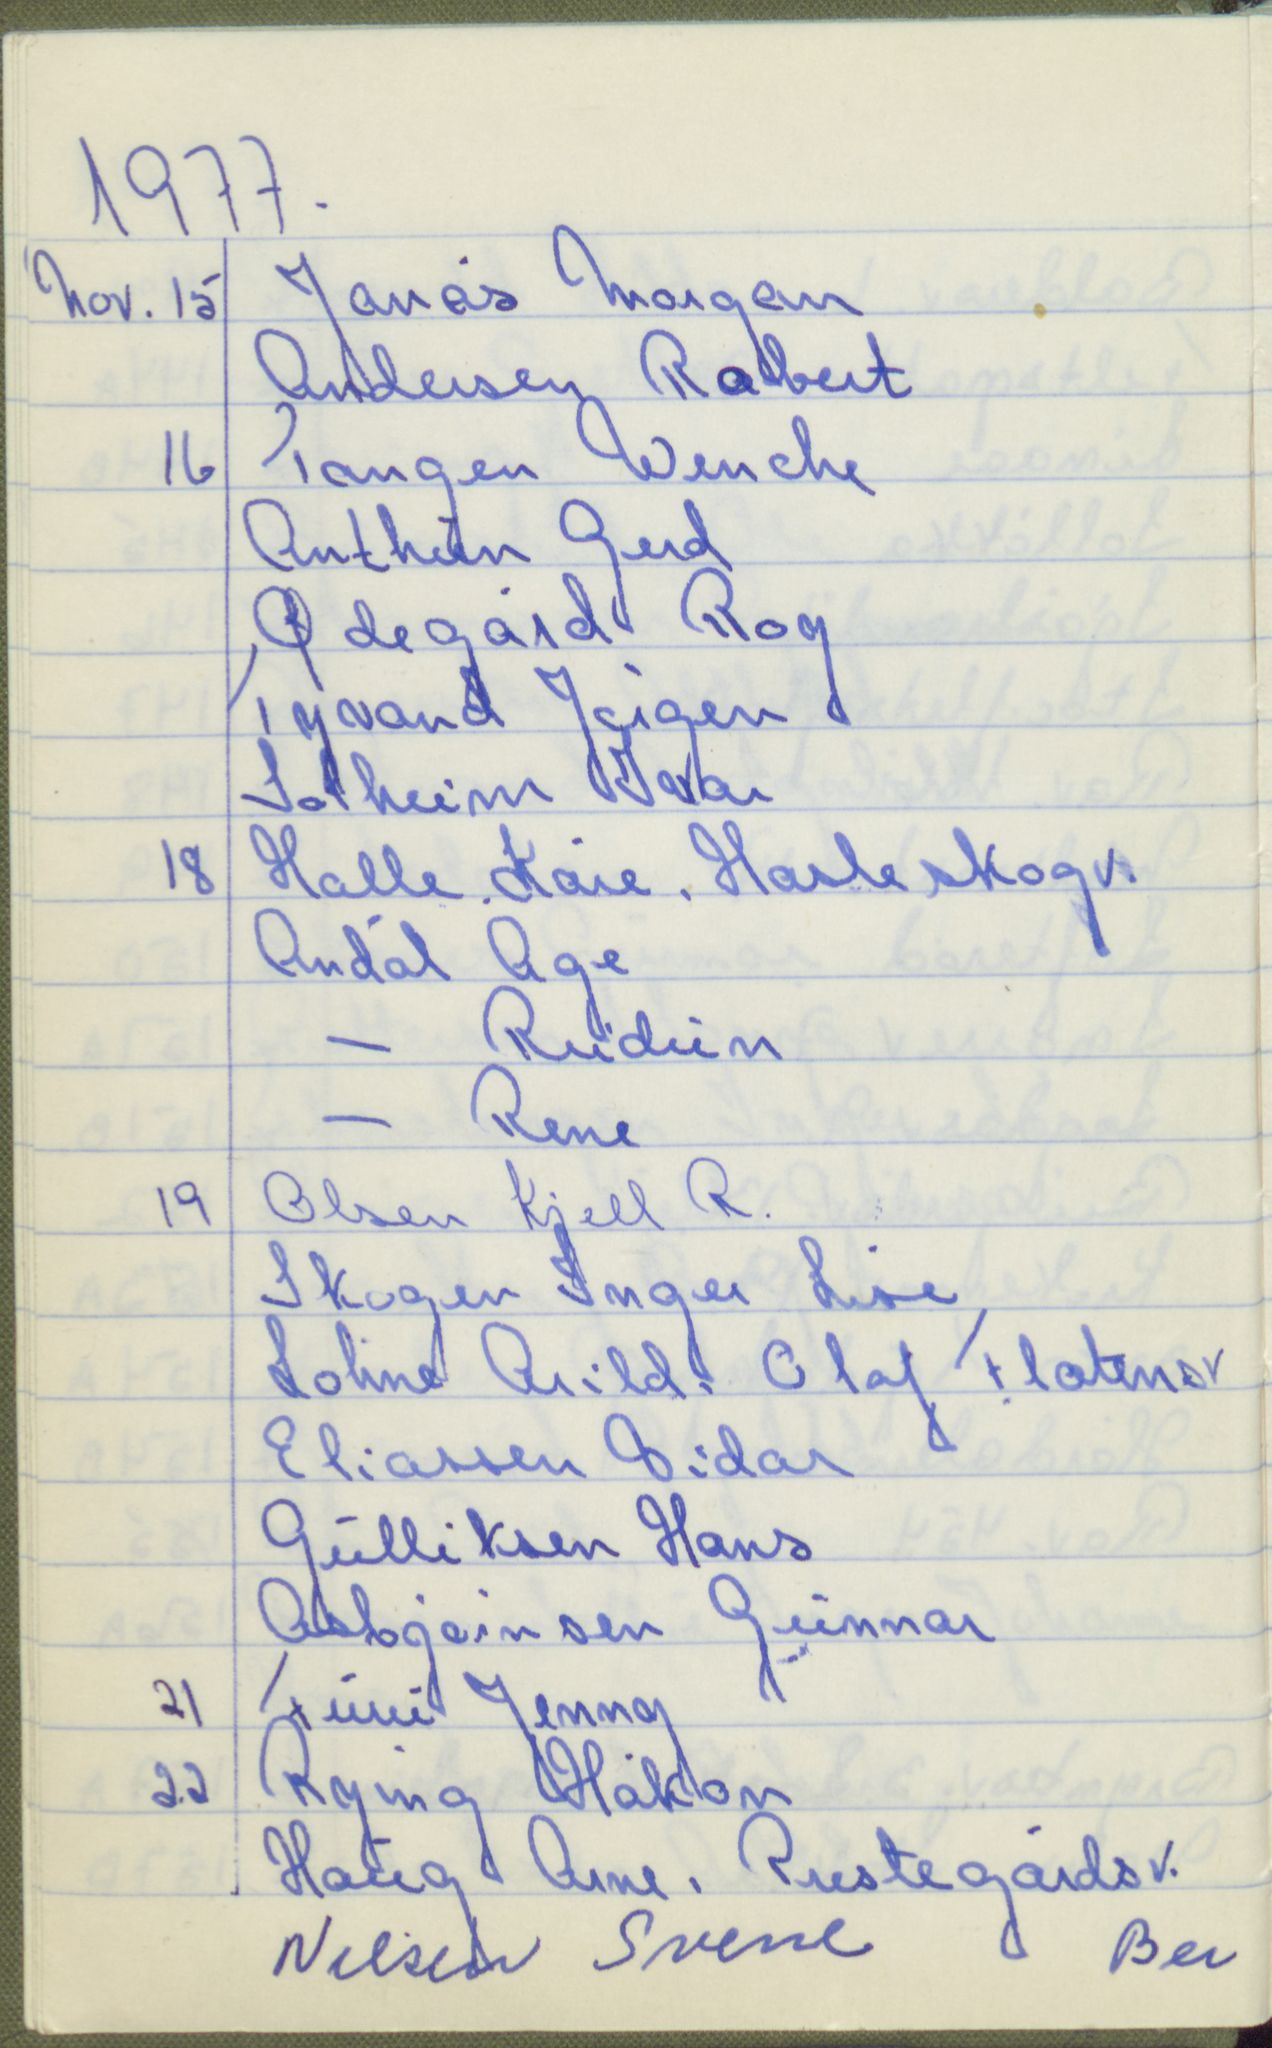 1977.
Nov. 15 Jonås Morgan
Andersen Robert
16 Tangen Wenche
Anthün Gerd
Ødegård Roy
Tyvand Jørgen
Solheim Ivar
18 Halle Kåre. Hasleskogv.
Andål Åge
— Reidün
— Rene
19 Olsen Kjell R.
Skogen Inger Lise
Lohne Arild. Olaf Flatensv
Eliassen Vidar
Gülliksen Hans
Asbjørnsen Günnar
21 Jenny
22 Rying Håkon
Haüg Arne. Prestegårdsv.
Nilsen Sverre Ber